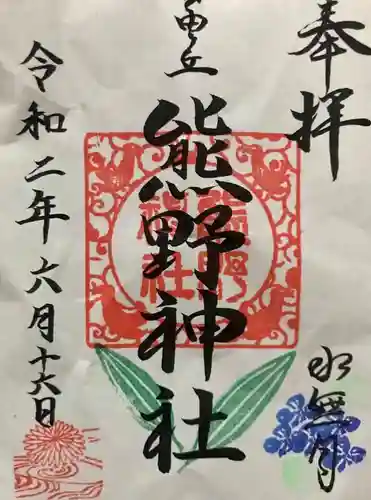 奉拝
水無月
丘
熊野神社
熊野
神社
令和二年六月十六日